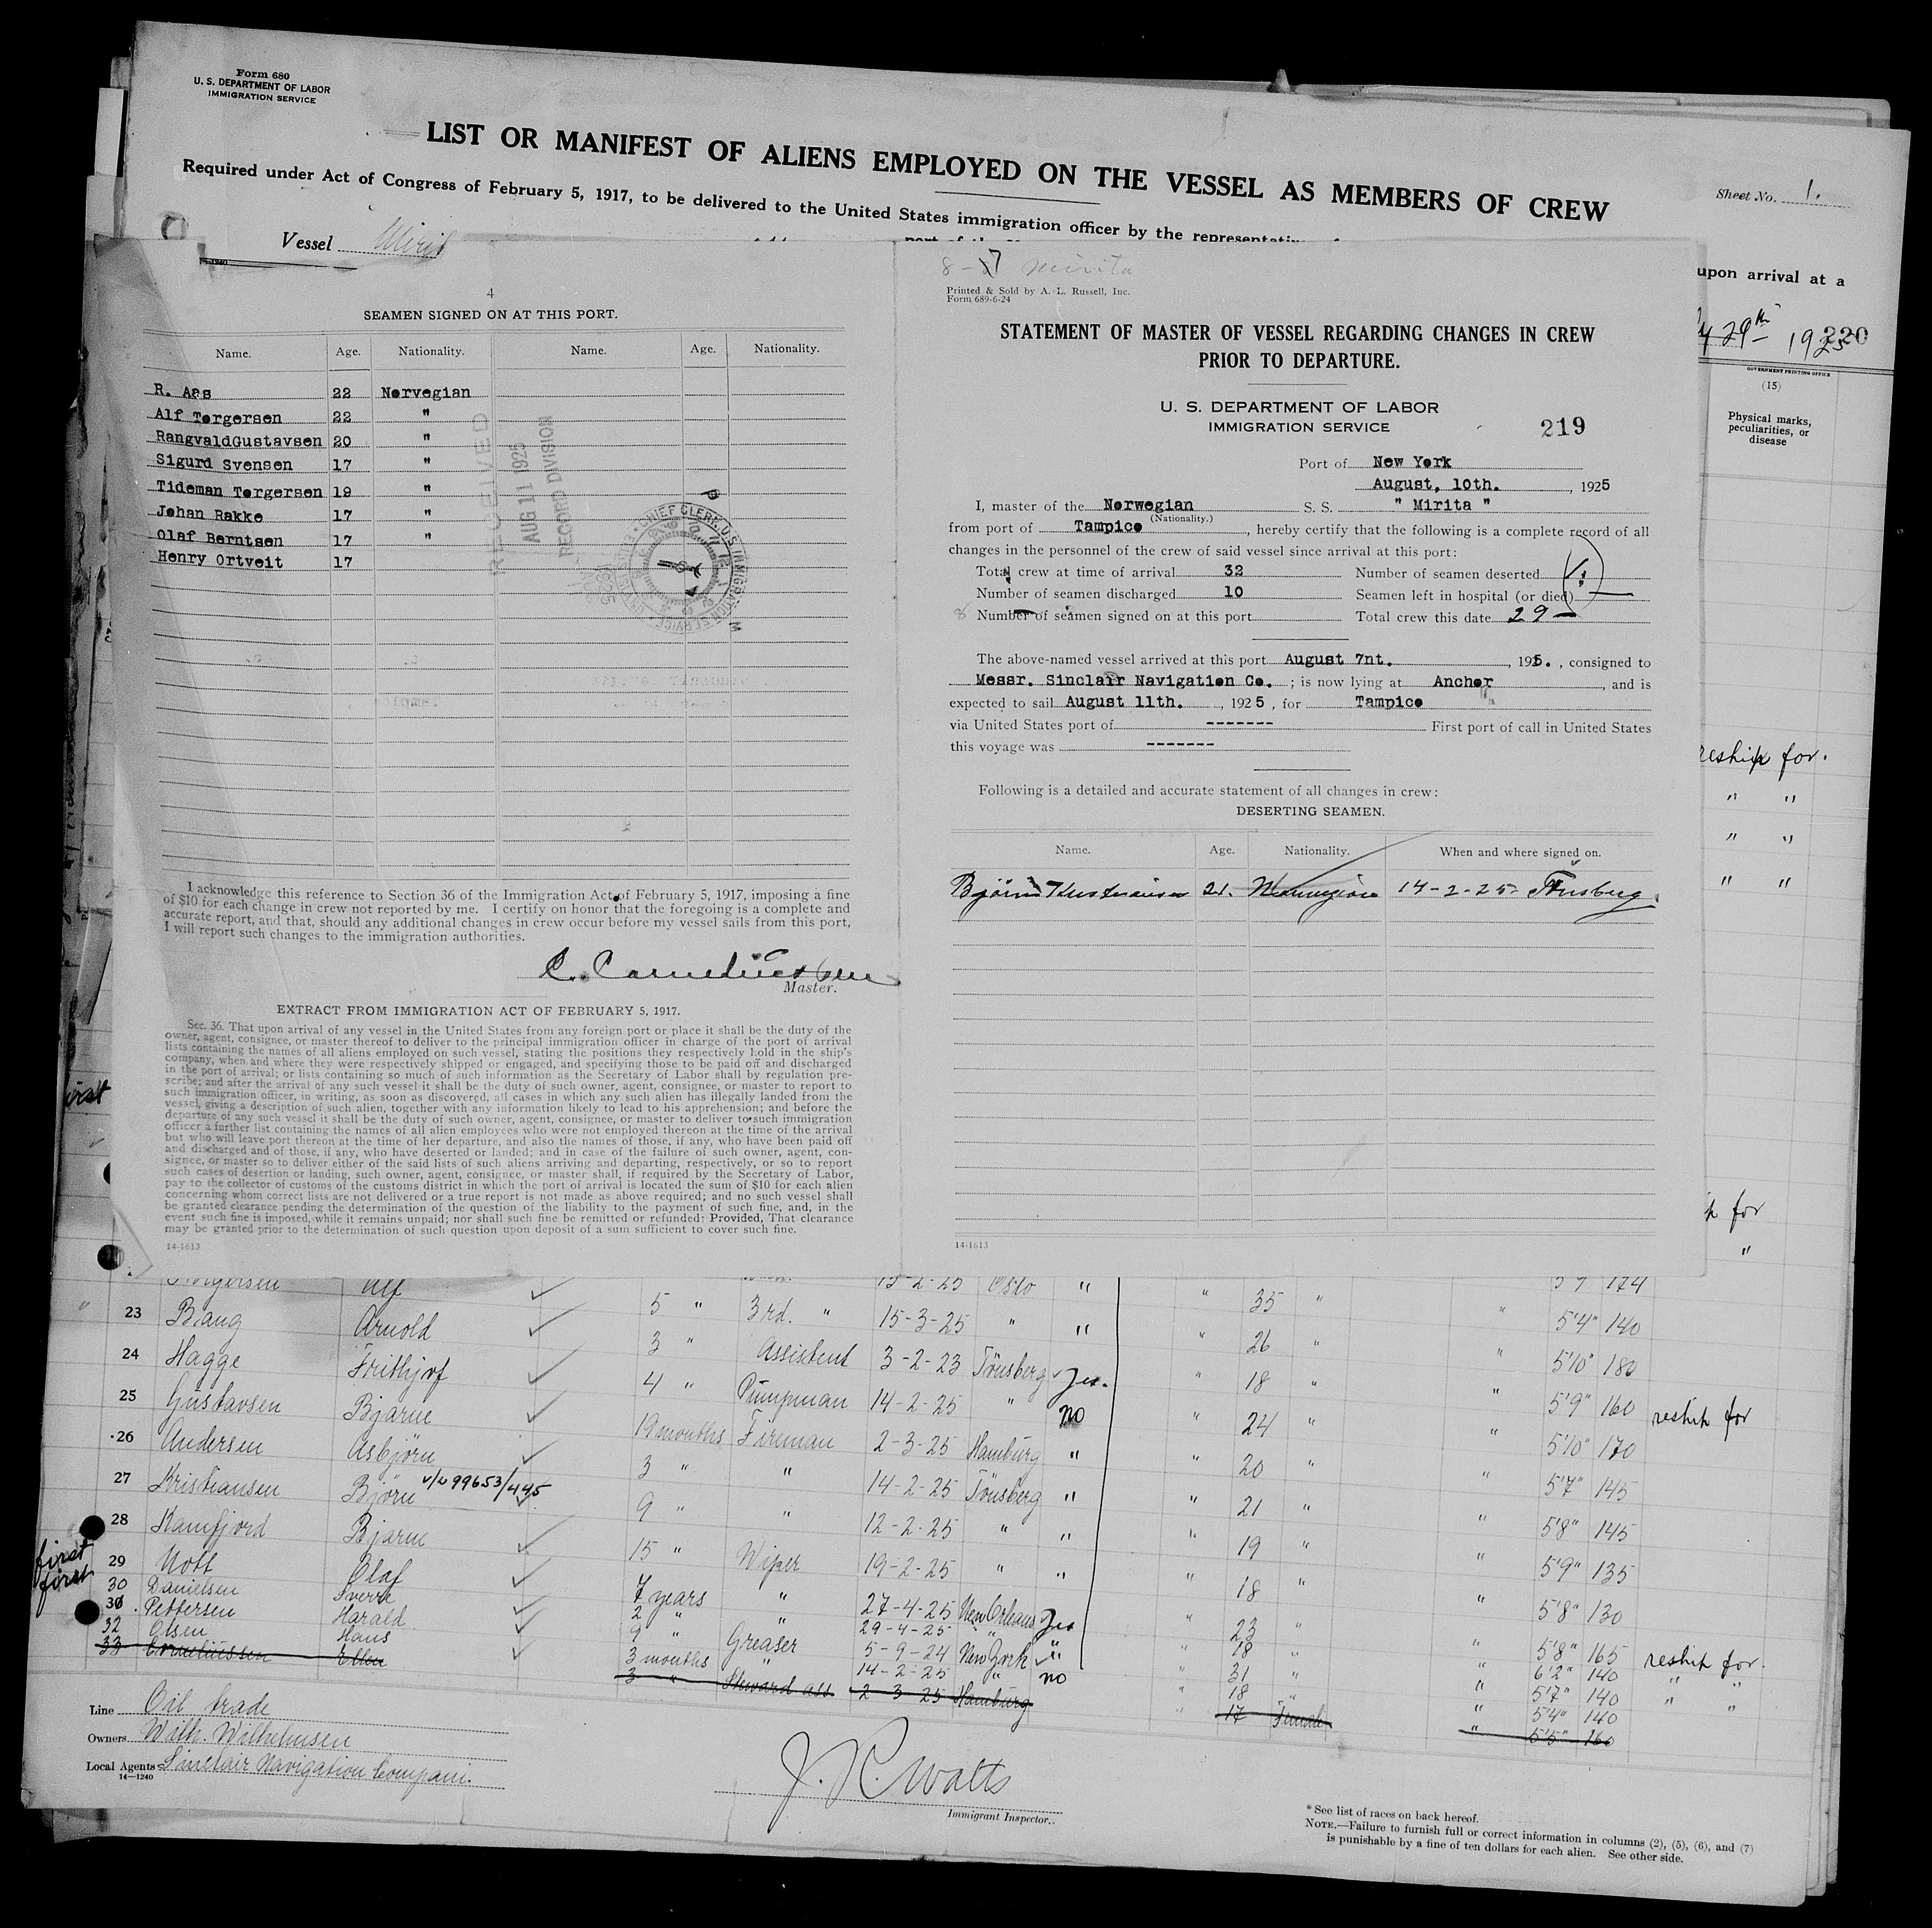 Form 680
U. S. DEPARTMENT OF LABOR
IMMIGRATION SERVICE
LIST OR MANIFEST OF ALIENS EMPLOYED ON THE VESSEL AS MEMBERS OF CREW
Sheet No. 1.
Required under Act of Congress of February 5, 1917, to be delivered to the United States immigration officer by the
upon arrival at a
Vessel
29th 1925
220
GOVERNMENT PRINTING OFFICE
(15)
Physical marks,
peculiarities, or
disease
4
SEAMEN SIGNED ON AT THIS PORT.
Name. Age. Nationality. Name. Age. Nationality.
R. Aas 22 Norwegian
Alf Torgersen 22 "
RangvaldGustavsen 20 "
Sigurd Svensen 17 "
Tideman Torgersen 19 "
Johan Rakke 17 "
Olaf Berntsen 17 "
Henry Ortveit 17
RECEIVED
AUG 11 1925
RECORD DIVISION
CHIEF CLERK U.S. IMMIGRATION SERVICE
I acknowledge this reference to Section 36 of the Immigration Act of February 5, 1917, imposing a fine
of $10 for each change in crew not reported by me. I certify on honor that the foregoing is a complete and
accurate report, and that, should any additional changes in crew occur before my vessel sails from this port,
I will report such changes to the immigration authorities.
Master.
EXTRACT FROM IMMIGRATION ACT OF FEBRUARY 5, 1917.
Sec. 36. That upon arrival of any vessel in the United States from any foreign port or place it shall be the duty of the
owner, agent, consignee, or master thereof to deliver to the principal immigration officer in charge of the port of arrival
lists containing the names of all aliens employed on such vessel, stating the positions they respectively hold in the ship's
company, when and where they were respectively shipped or engaged, and specifying those to be paid off and discharged
in the port of arrival; or lists containing so much of such information as the Secretary of Labor shall by regulation pre-
scribe; and after the arrival of any such vessel it shall be the duty of such owner, agent, consignee, or master to report to
such immigration officer, in writing, as soon as discovered, all cases in which any such alien has illegally landed from the
vessel, giving a description of such alien, together with any information likely to lead to his apprehension; and before the
departure of any such vessel it shall be the duty of such owner, agent, consignee, or master to deliver to such immigration
officer a further list containing the names of all alien employees who were not employed thereon at the time of the arrival
but who will leave port thereon at the time of her departure, and also the names of those, if any, who have been paid off
and discharged and of those, if any, who have deserted or landed; and in case of the failure of such owner, agent, con-
signee, or master so to deliver either of the said lists of such aliens arriving and departing, respectively, or so to report
such cases of desertion or landing, such owner, agent, consignee, or master shall, if required by the Secretary of Labor,
pay to the collector of customs of the customs district in which the port of arrival is located the sum of $10 for each alien
concerning whom correct lists are not delivered or a true report is not made as above required; and no such vessel shall
be granted clearance pending the determination of the question of the liability to the payment of such fine, and, in the
event such fine is imposed, while it remains unpaid; nor shall such fine be remitted or refunded: Provided, That clearance
may be granted prior to the determination of such question upon deposit of a sum sufficient to cover such fine.
14-1613
Mirita
Printed & Sold by A. L. Russell, Inc.
Form 689-6-24
STATEMENT OF MASTER OF VESSEL REGARDING CHANGES IN CREW
PRIOR TO DEPARTURE.
U. S. DEPARTMENT OF LABOR
IMMIGRATION SERVICE
219
Port of New York
August, 10th., 1925
I, master of the Norwegian S. S. " Mirita "
(Nationality.)
from port of Tampico, hereby certify that the following is a complete record of all
changes in the personnel of the crew of said vessel since arrival at this port:
Total crew at time of arrival 32 Number of seamen deserted 1.
Number of seamen discharged 10 Seamen left in hospital (or died) —
8 Number of seamen signed on at this port Total crew this date 29 —
The above-named vessel arrived at this port August 7nt., 1925. , consigned to
Messr. Sinclair Navigation Co. ; is now lying at Anchor, and is
expected to sail August 11th., 1925, for Tampico
via United States port of ------- First port of call in United States
this voyage was -------
Following is a detailed and accurate statement of all changes in crew:
DESERTING SEAMEN.
Name. Age. Nationality. When and where signed on.
Björn Kristiansen 21. Norwegian 14-2-25- Tönsberg.
14-1613
reship for.
" "
" "
" "
for
"
first
Torgersen Alf 15-2-25 Oslo " " 35 " " 5'9 174
23 Bang Arnold 5 " 3rd. " 15-3-25 " " " 26 " " 5'4" 140
24 Hagge Frithjof 3 " Assistent 3-2-23 Tönsberg Yes. " 18 " " 5'10" 180
25 Gustavsen Bjarne 4 " Pumpman 14-2-25 " no " 24 " " 5'9" 160 reship for
26 Andersen Asbjörn 19 months Fireman 2-3-25 Hamburg " " 20 " " 5'10" 170
27 Kristiansen Björn 99653/445 3 " " 14-2-25 Tönsberg " " 21 " " 5'7" 145
28 Kamfjord Bjarne 9 " " 12-2-25 " " " 19 " " 5'8" 145
first 29 Mott Olaf 15 " Wiper 19-2-25 " " " 18 " " 5'9" 135
first 30 Danielsen Sverre 7 years " 27-4-25 New Orleans Yes " 23 " " 5'8" 130
31 Pettersen Harald 2 " " 29-4-25 " " 18 " " 5'8" 165 reship for.
32 Olsen Hans 9 " Greaser 5-9-24 New York " " 31 " " 6'2" 140 " "
3 months " 14-2-25 " no " 18 " " 5'7" 140 " "
33 Corneliussen Ellen 3 " Steward ass 2-3-25 Hamburg 17 Female " 5'4" 140 "
" 5'5" 160
Line Oil trade
Owners Wilh. Wilhelmsen
Local Agents Sinclair Navigation Company.
14—1240
J. R. Watts
Immigrant Inspector.
* See list of races on back hereof.
NOTE.—Failure to furnish full or correct information in columns (2), (5), (6), and (7)
is punishable by a fine of ten dollars for each alien. See other side.